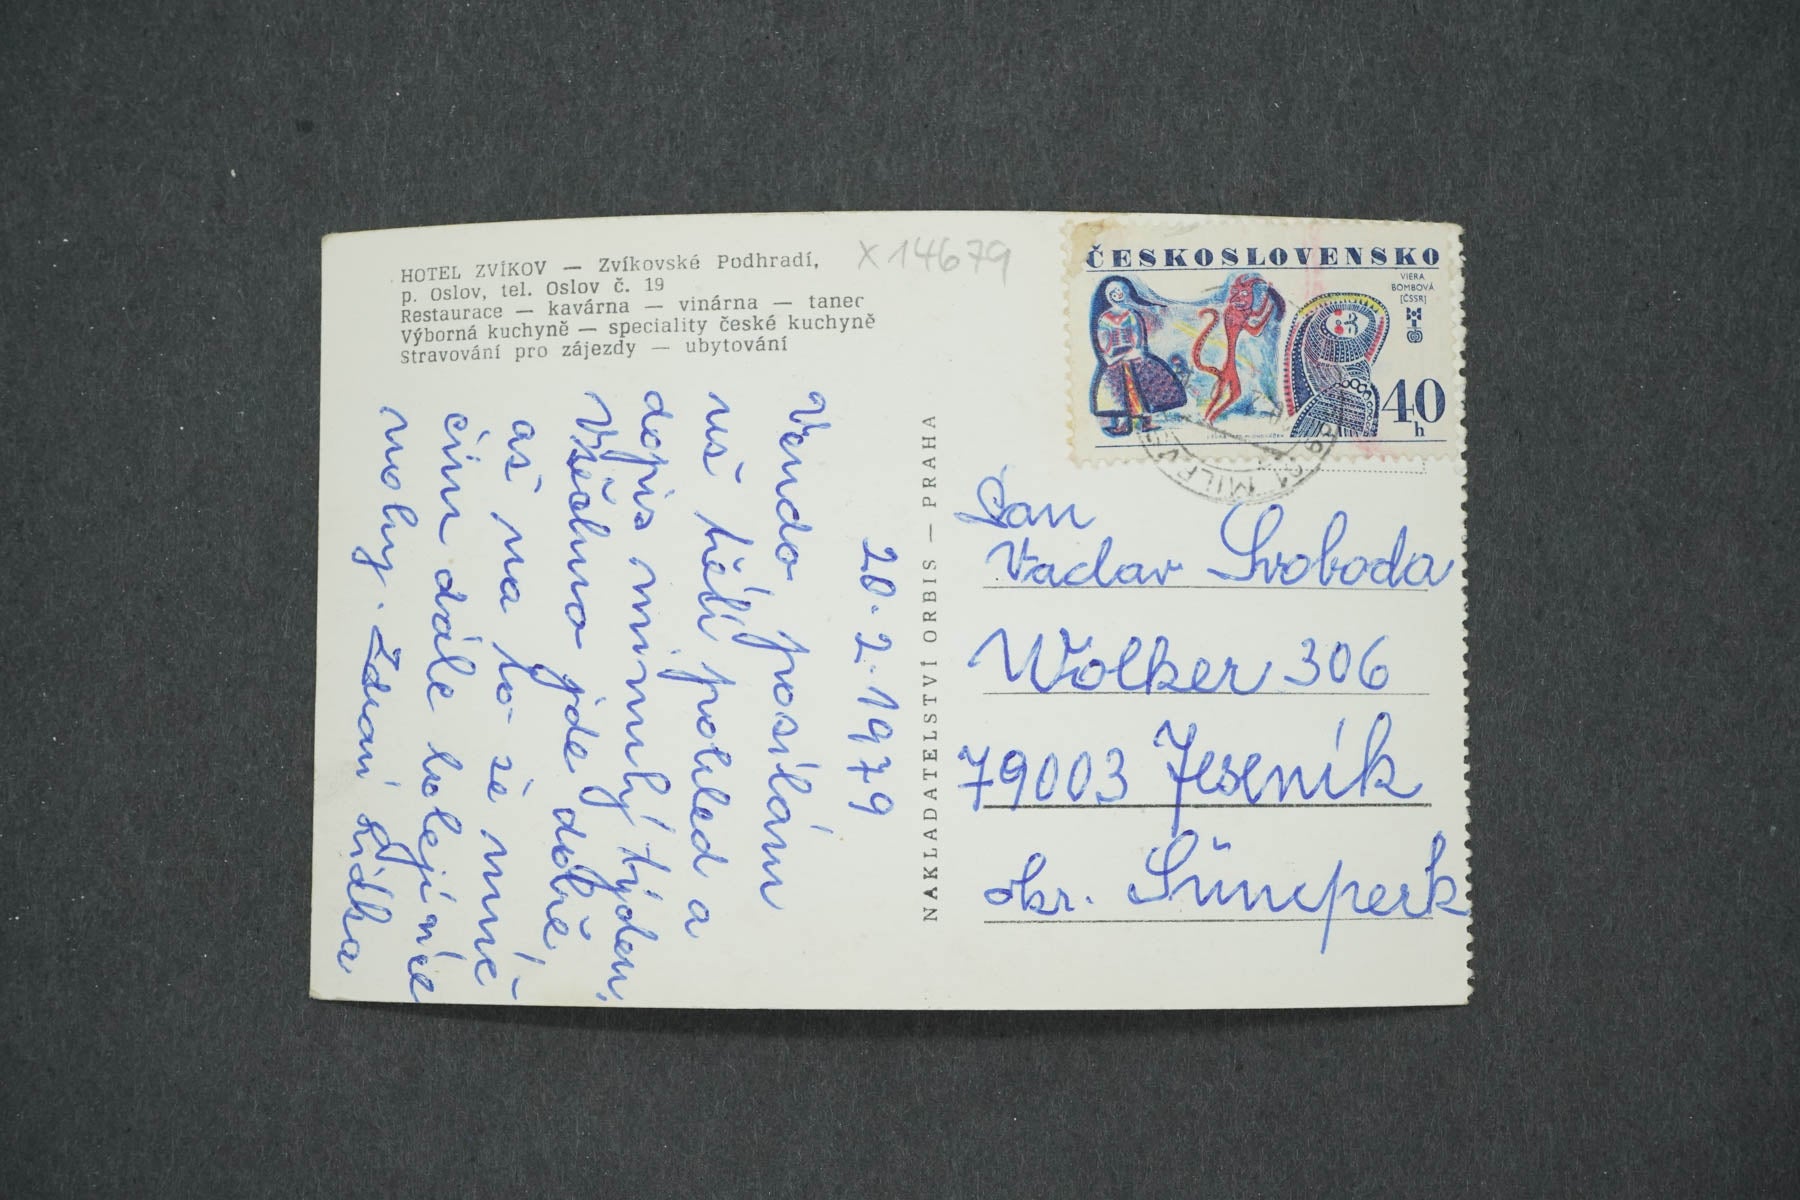 HOTEL ZVÍKOV — Zvíkovské Podhradí,
p. Oslov, tel. Oslov č. 19
Restaurace — kavárna — vinárna — tanec
Výborná kuchyně — speciality české kuchyně
Stravování pro zájezdy — ubytování
X 14679
20. 2. 1979
Vendo posílám
uš třetí pohled a
dopis minulý týden,
Všechno jde dobře
aš na to še nmě
čím dále bolejí více
nohy. Zdraví Lidka
NAKLADATELSTVÍ ORBIS — PRAHA
ČESKOSLOVENSKO
VIERA
BOMBOVÁ
[ČSSR]
40
h
Pan
Vaclav Svoboda
Wolker 306
79003 Jeseník
okr. Šumperk